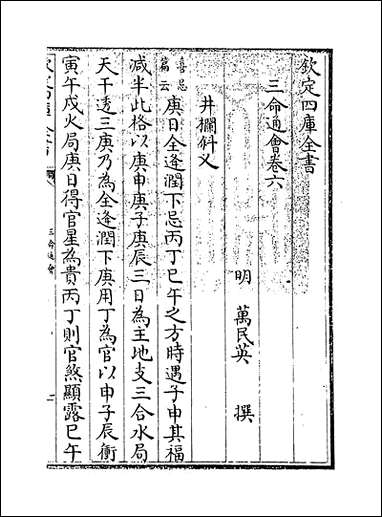 欽定四庫全書
三命通會卷六
明 萬民英 撰
井欄斜义
喜忌篇云 庚日全逢潤下忌丙丁巳午之方時遇子申其福
減半此格以庚申庚子庚辰三日為主地支三合水局
天干透三庚乃為全逢潤下庚用丁為官以申子辰衝
寅午戌火局庚日得官星為貴丙丁則官煞顯露巳午
三命通會